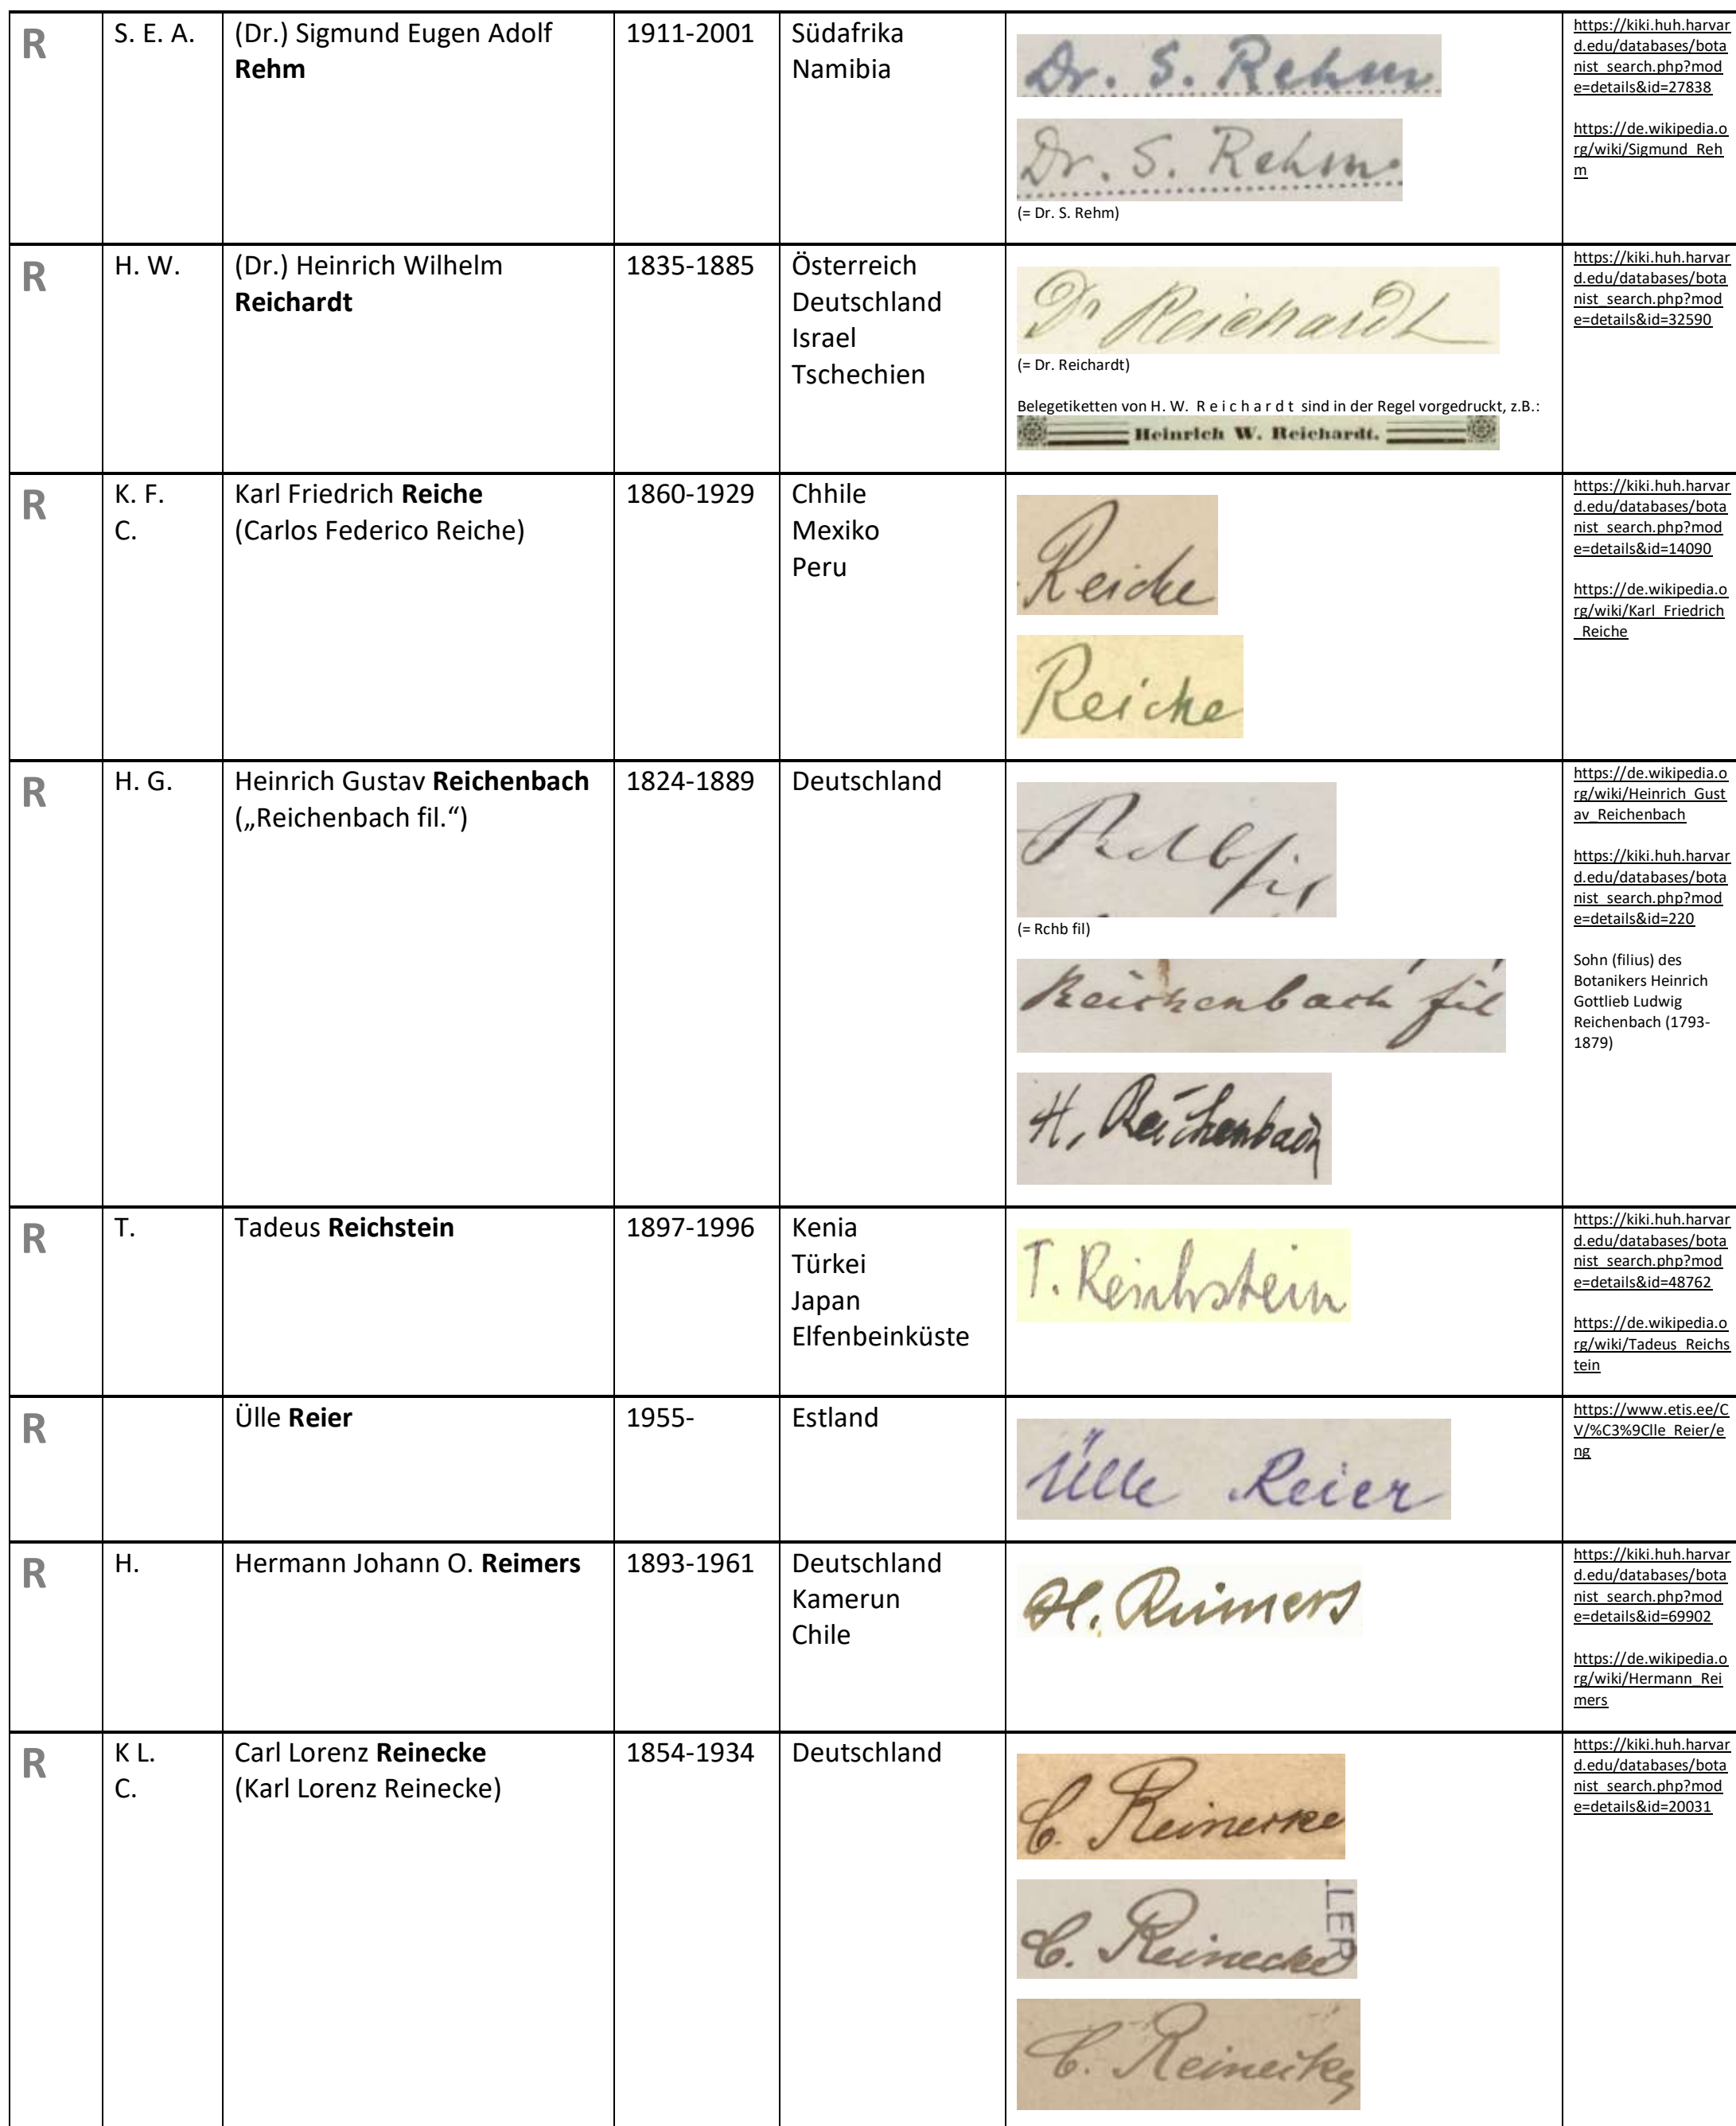 R
S. E. A.
(Dr.) Sigmund Eugen Adolf
Rehm
1911-2001
Südafrika
Namibia
Dr. S. Rehm
Dr. S. Rehm
(= Dr. S. Rehm)
https://kiki.huh.harvar
d.edu/databases/bota
nist_search.php?mod
e=details&id=27838
https://de.wikipedia.o
rg/wiki/Sigmund_Reh
m
R
H. W.
(Dr.) Heinrich Wilhelm
Reichardt
1835-1885
Österreich
Deutschland
Israel
Tschechien
Dr Reichardt
(= Dr. Reichardt)
Belegetiketten von H. W. R e i c h a r d t sind in der Regel vorgedruckt, z.B.:
Heinrich W. Reichardt.
https://kiki.huh.harvar
d.edu/databases/bota
nist_search.php?mod
e=details&id=32590
R
K. F.
C.
Karl Friedrich Reiche
(Carlos Federico Reiche)
1860-1929
Chhile
Mexiko
Peru
Reiche
Reiche
https://kiki.huh.harvar
d.edu/databases/bota
nist_search.php?mod
e=details&id=14090
https://de.wikipedia.o
rg/wiki/Karl_Friedrich
_Reiche
R
H. G.
Heinrich Gustav Reichenbach
(„Reichenbach fil.“)
1824-1889
Deutschland
Rchb fil
(= Rchb fil)
Reichenbach fil
H. Reichenbach
https://de.wikipedia.o
rg/wiki/Heinrich_Gust
av_Reichenbach
https://kiki.huh.harvar
d.edu/databases/bota
nist_search.php?mod
e=details&id=220
Sohn (filius) des
Botanikers Heinrich
Gottlieb Ludwig
Reichenbach (1793-
1879)
R
T.
Tadeus Reichstein
1897-1996
Kenia
Türkei
Japan
Elfenbeinküste
T. Reichstein
https://kiki.huh.harvar
d.edu/databases/bota
nist_search.php?mod
e=details&id=48762
https://de.wikipedia.o
rg/wiki/Tadeus_Reichs
tein
R
Ülle Reier
1955-
Estland
Ülle Reier
https://www.etis.ee/C
V/%C3%9Clle_Reier/e
ng
R
H.
Hermann Johann O. Reimers
1893-1961
Deutschland
Kamerun
Chile
H. Reimers
https://kiki.huh.harvar
d.edu/databases/bota
nist_search.php?mod
e=details&id=69902
https://de.wikipedia.o
rg/wiki/Hermann_Rei
mers
R
K L.
C.
Carl Lorenz Reinecke
(Karl Lorenz Reinecke)
1854-1934
Deutschland
C. Reinecke
C. Reinecke
LER
C. Reinecke
https://kiki.huh.harvar
d.edu/databases/bota
nist_search.php?mod
e=details&id=20031